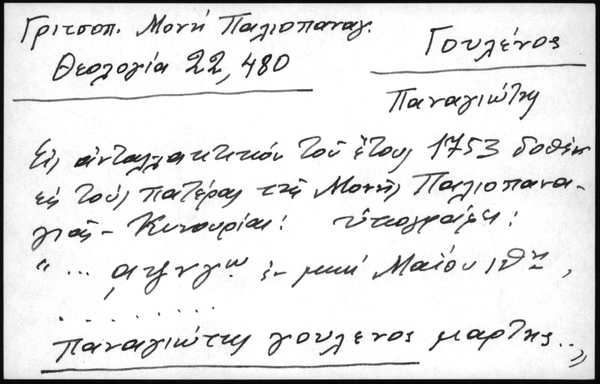 Γριτσοπ. Μονή Παλιοπαναγ.
Θεολογία 22, 480
Γουλένος
Παναγιώτης
Εἰς ἀνταλλακτικόν τοῦ ἔτους 1753 δοθέν
εἰς τούς πατέρας τῆς Μονῆς Παλιοπανα-
γιᾶς - Κυνουρίας: ὑπογράφει:
" ... ἐν μηνί Μαΐου
. . . . . . . . .
παναγιώτης γουλενος μαρτης.. "